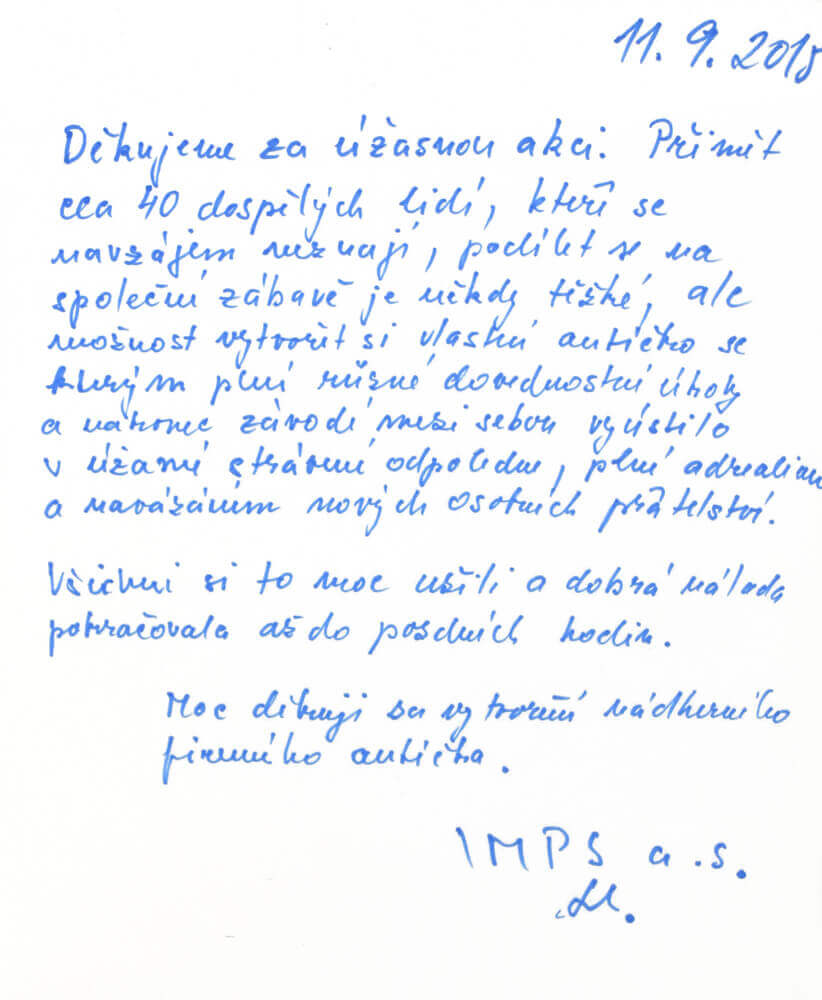 11. 9. 2018
Děkujeme za úžasnou akci. Přimět
cca 40 dospělých lidí, kteří se
navzájem neznají, podílet se na
společné zábavě je někdy těžké, ale
možnost vytvořit si vlastní autíčko se
kterým plní různé dovednostní úkoly
a nakonec závodí mezi sebou vyústilo
v úžasné strávené odpoledne, plné adrealinu
a navázáním nových osobních přátelství.
Všichni si to moc užili a dobrá nálada
pokračovala až do pozdních hodin.
Moc děkuji za vytvoření nádherného
firemního autíčka.
IMPS a.s.